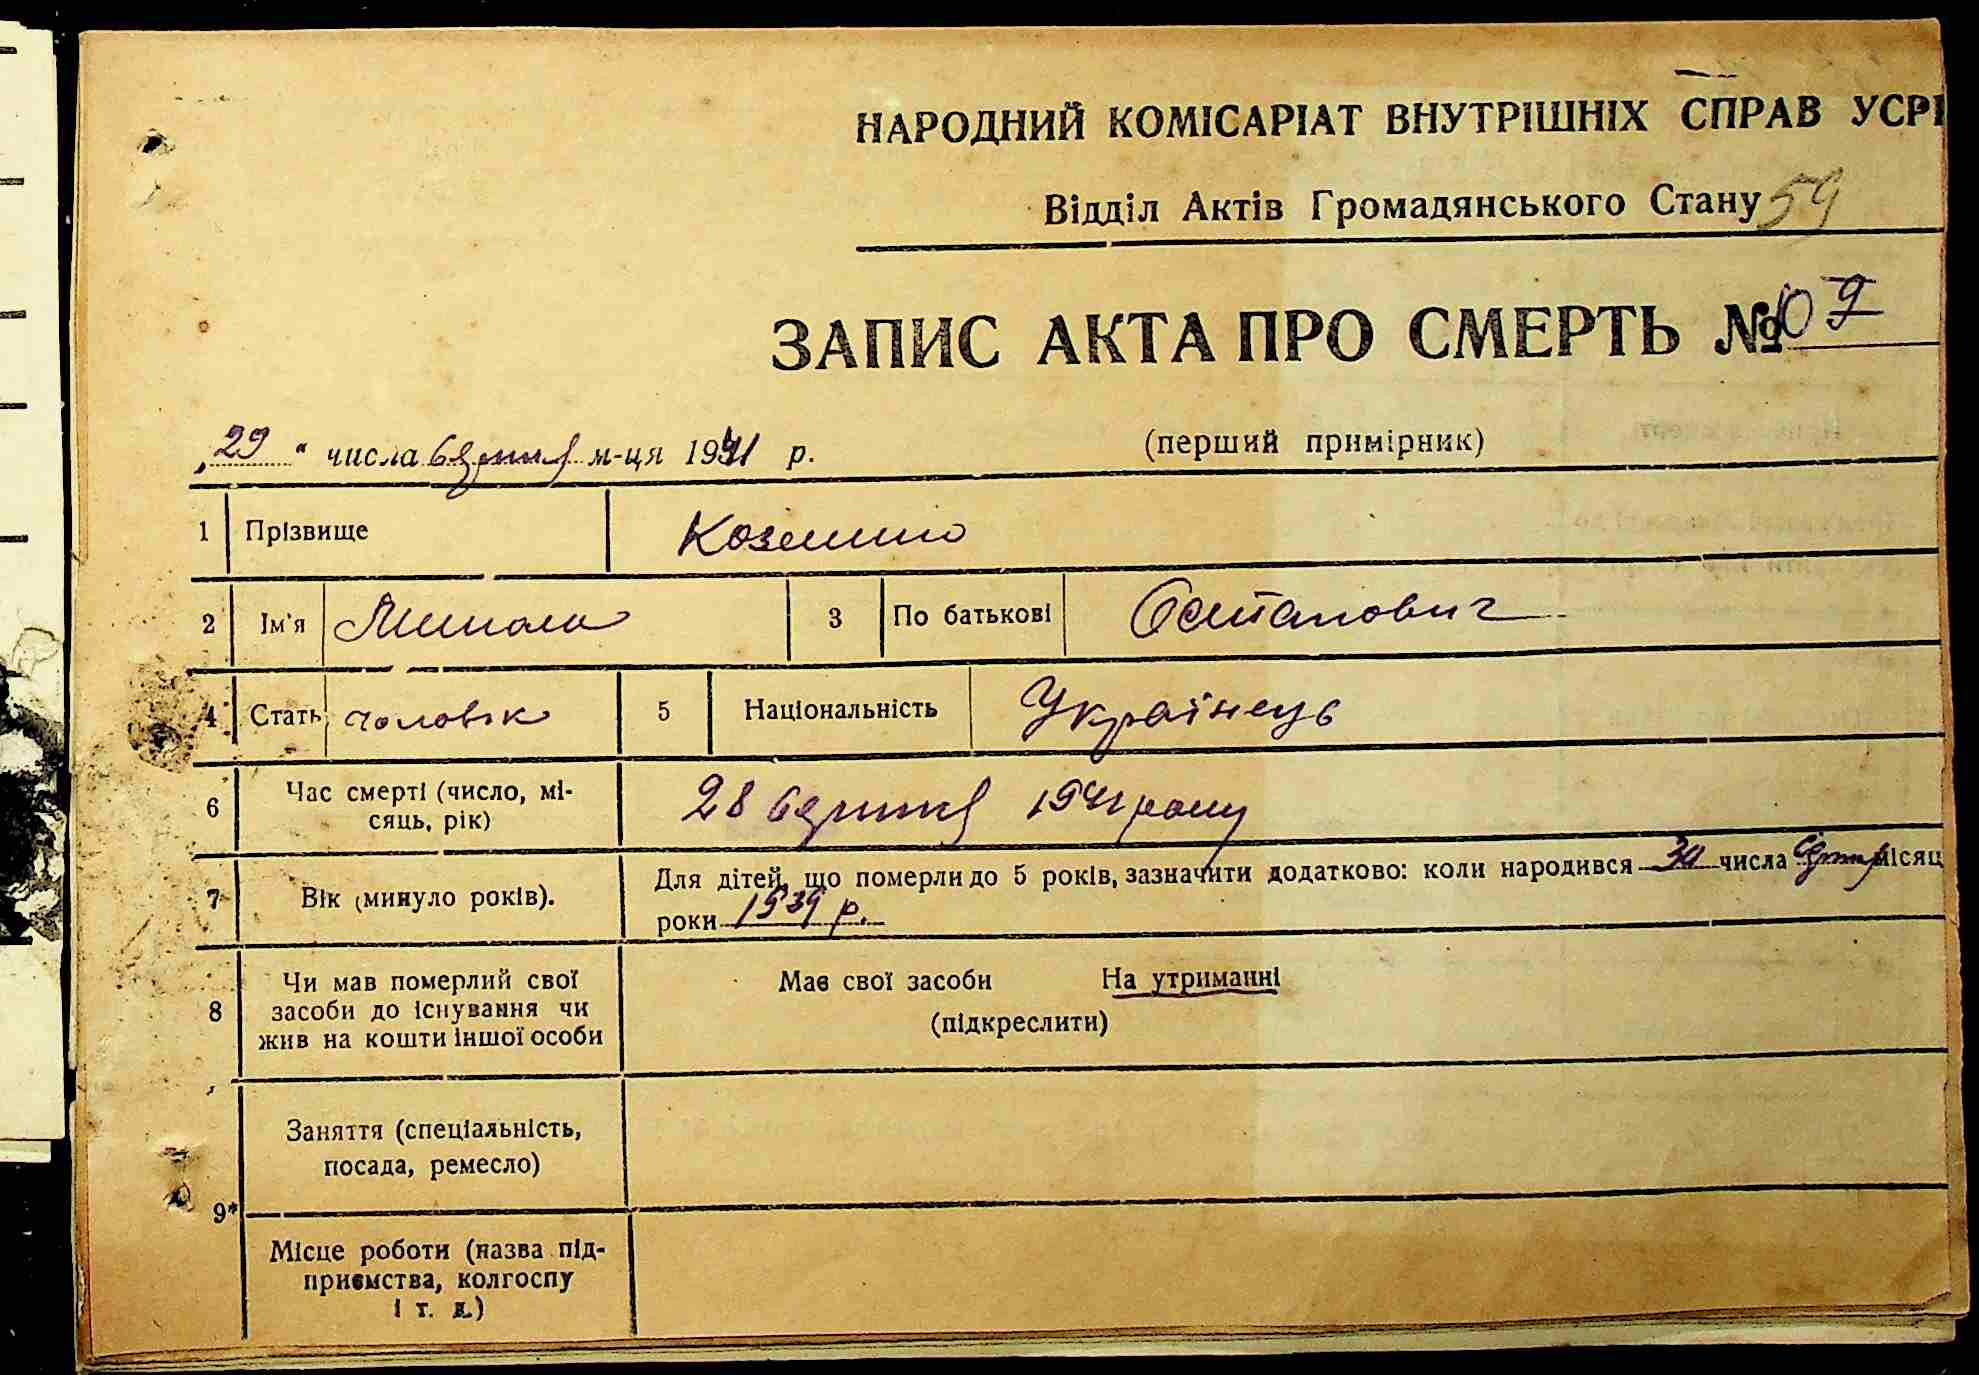 НАРОДНИЙ КОМІСАРІАТ ВНУТРІШНІХ СПРАВ УСРР
Відділ Актів Громадянського Стану 59
ЗАПИС АКТА ПРО СМЕРТЬ № 09
„29“ числа м-ця 1941 р. (перший примірник)
1 Прізвище
2 Ім'я Микола 3 По батькові Остапович
4 Стать чоловік 5 Національність Українець
6 Час смерті (число, мі-
сяць, рік) 28 1941 року
7 Вік (минуло років). Для дітей, що померли до 5 років, зазначити додатково: коли народився 30 числа місяц
роки 1939 р.
8 Чи мав померлий свої
засоби до існування чи
жив на кошти іншої особи
Має свої засоби На утриманні
(підкреслити)
9* Заняття (спеціальність,
посада, ремесло)
Місце роботи (назва під-
приємства, колгоспу
і т. д.)